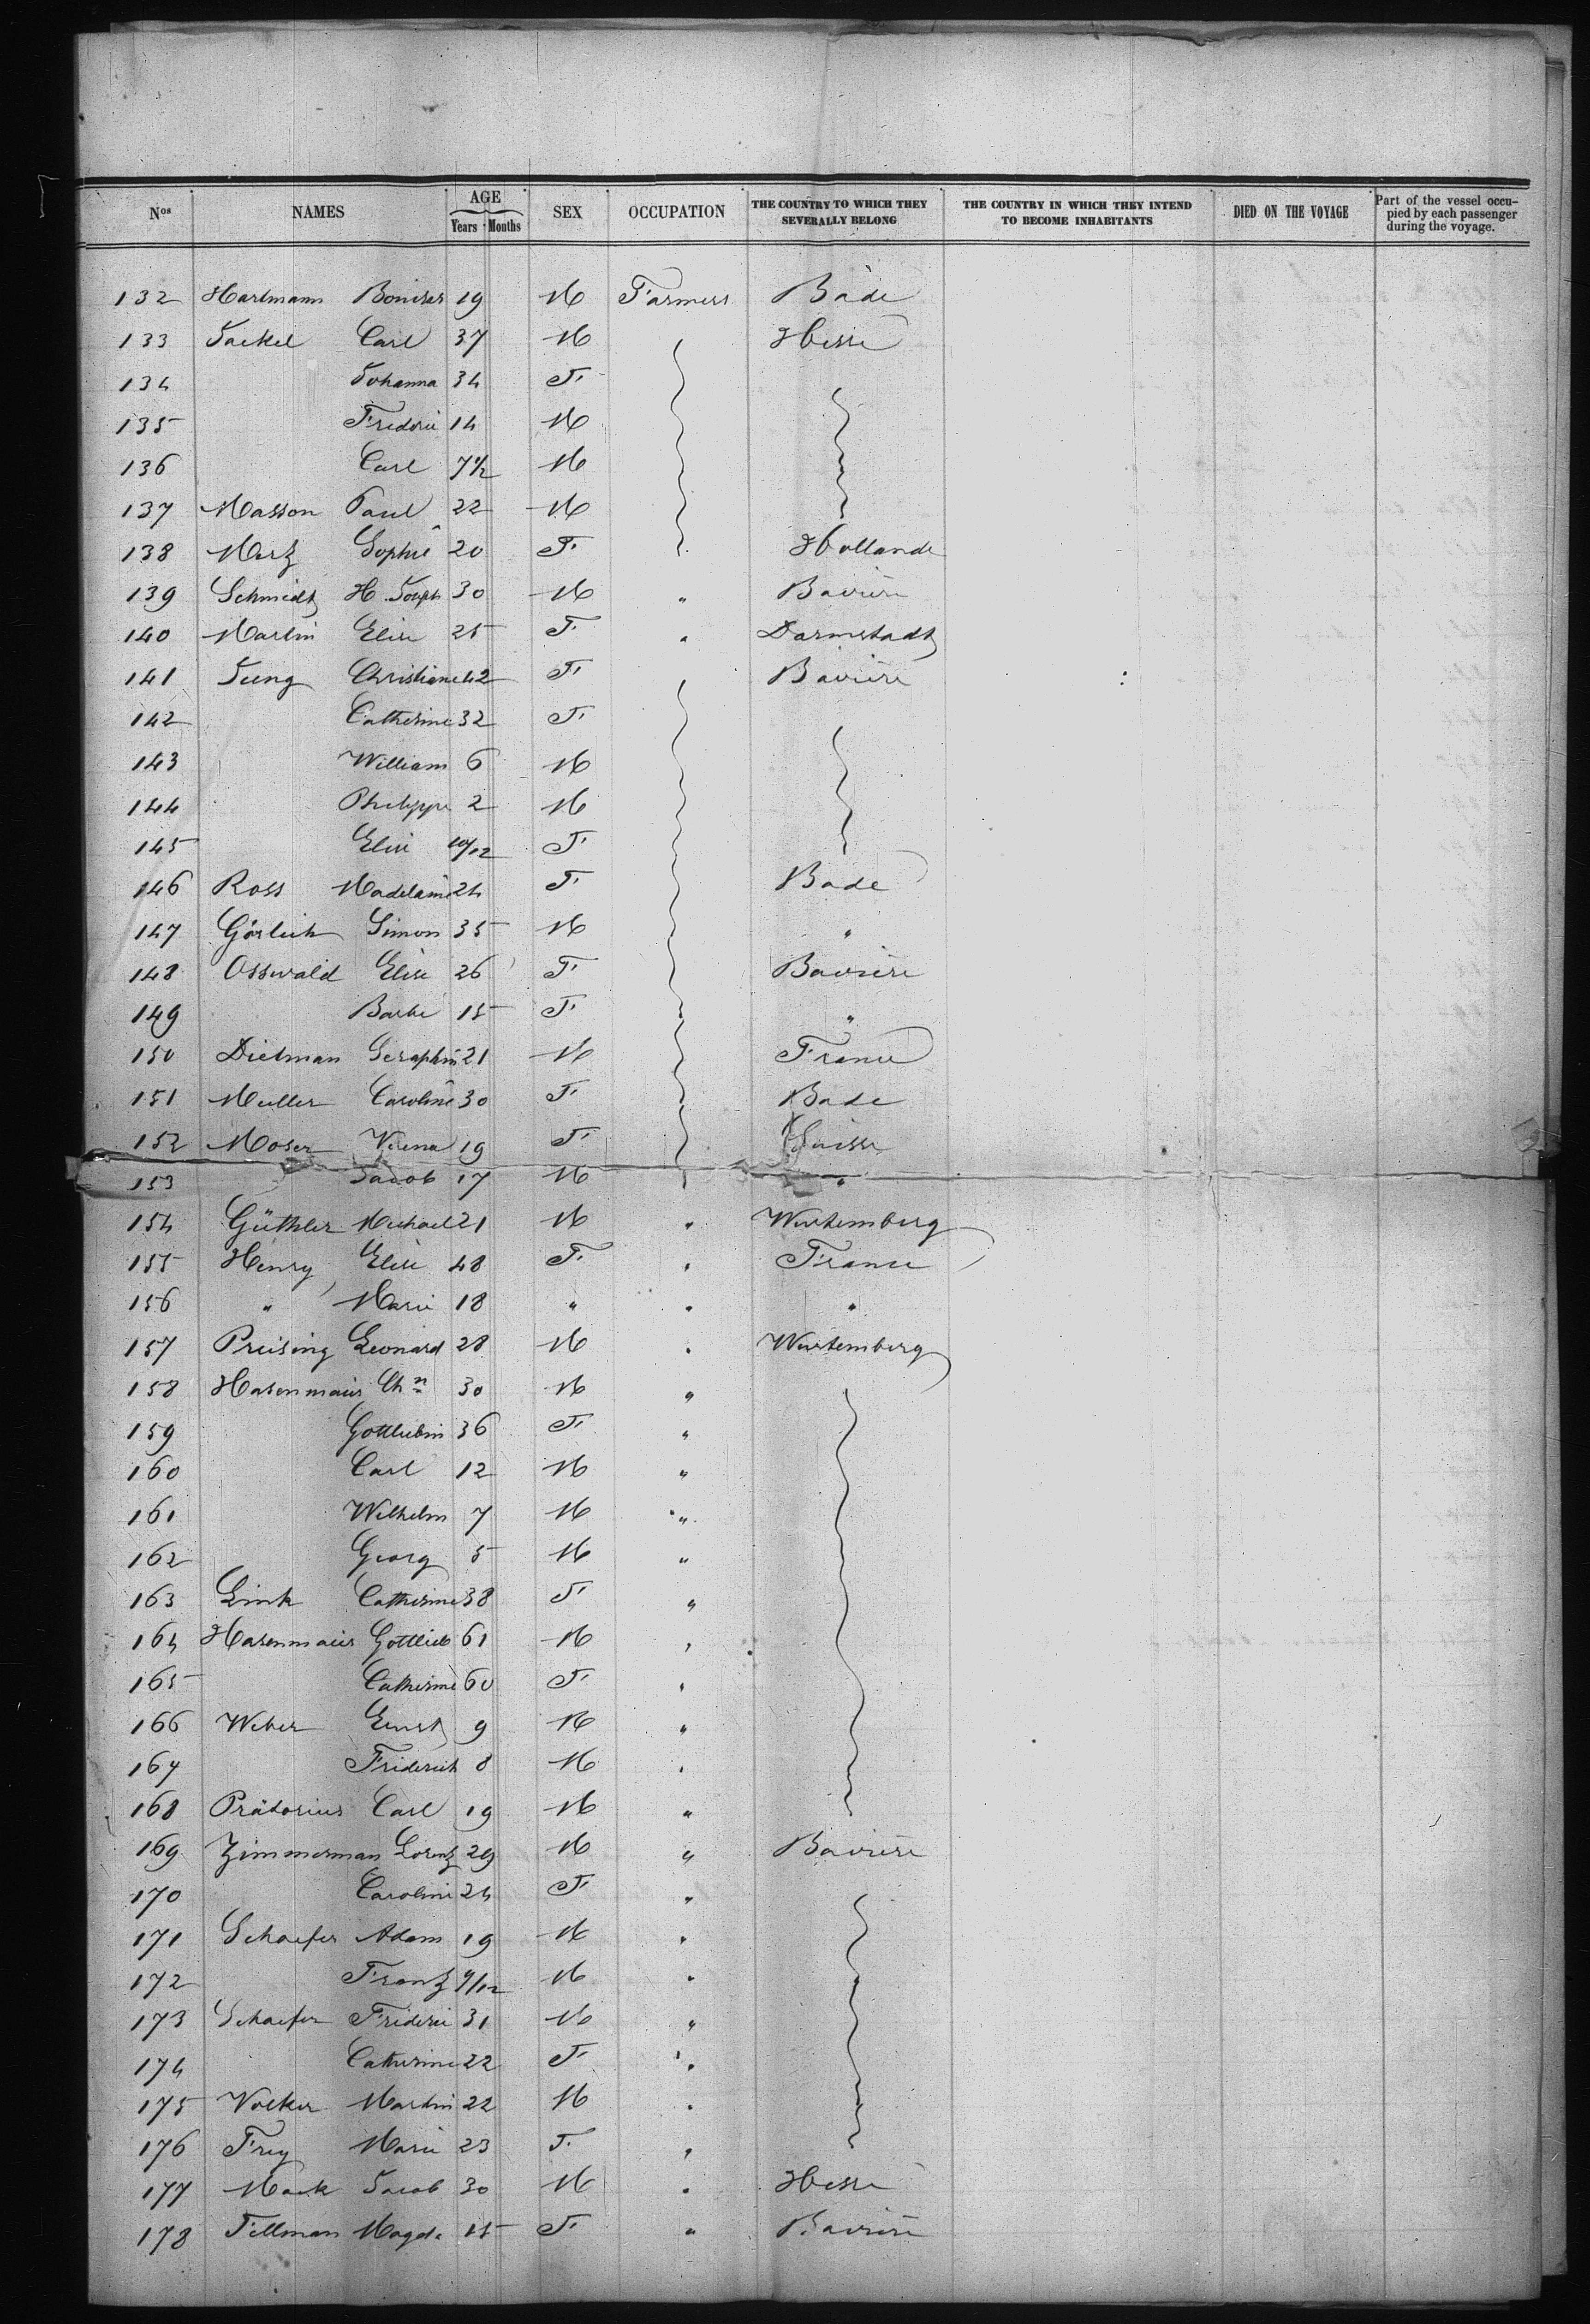 Nos NAMES AGE Years Months SEX OCCUPATION THE COUNTRY TO WHICH THEY SEVERALLY BELONG THE COUNTRY IN WHICH THEY INTEND TO BECOME INHABITANTS DIED ON THE VOYAGE Part of the vessel occu-pied by each passenger during the voyage.
132 Hartmann 19 M Farmers Bade
133 Jackel Carl 37 M Hesse
134 Johanna 34 F.
135 Frederic 14 M
136 Carl 7 1/2 M
137 Masson Paul 22 M
138 Merz Sophie 20 F. Hollande
139 Schmidt H. Joseph 30 M " Baviere
140 Martin Elise 25 F. " Darmstadt
141 Jung Christiane 42 F. Baviere
142 Catherine 32 F.
143 William 6 M
144 Philippe 2 M
145 Elise 10/12 F.
146 Ross Madelaine 24 F. Bade
147 Görlich Simon 35 M "
148 Osswald Elise 26 F. Baviere
149 Barbe 15 F. "
150 Dietman Seraphin 21 M France
151 Muller Caroline 30 F. Bade
152 Moser Verena 19 F. Suisse
153 Jacob 17 M "
154 Güthler Michael 21 M " Wurtemberg
155 Henry Elise 48 F. " France
156 " Marie 18 " " "
157 Preising Leonard 28 M " Wurtemberg
158 Hasenmaier Chn 30 M "
159 Gottliebin 36 F. "
160 Carl 12 M "
161 Wilhelm 7 M "
162 Georg 5 M "
163 Link Catherine 38 F. "
164 Hasenmaier Gottlieb 61 M "
165 Catherine 60 F. "
166 Weber Ernst 9 M "
167 Friderich 8 M "
168 Prätorius Carl 19 M "
169 Zimmerman Lorenz 29 M " Baviere
170 Caroline 24 F. "
171 Schaefer Adam 19 M "
172 Franz 9/12 M "
173 Schaefer Frideric 31 M "
174 Catherine 22 F. "
175 Volker Martin 22 M "
176 Frey Marie 23 F. "
177 Mack Jacob 30 M " Hesse
178 Tillman Magda 15 F. " Baviere